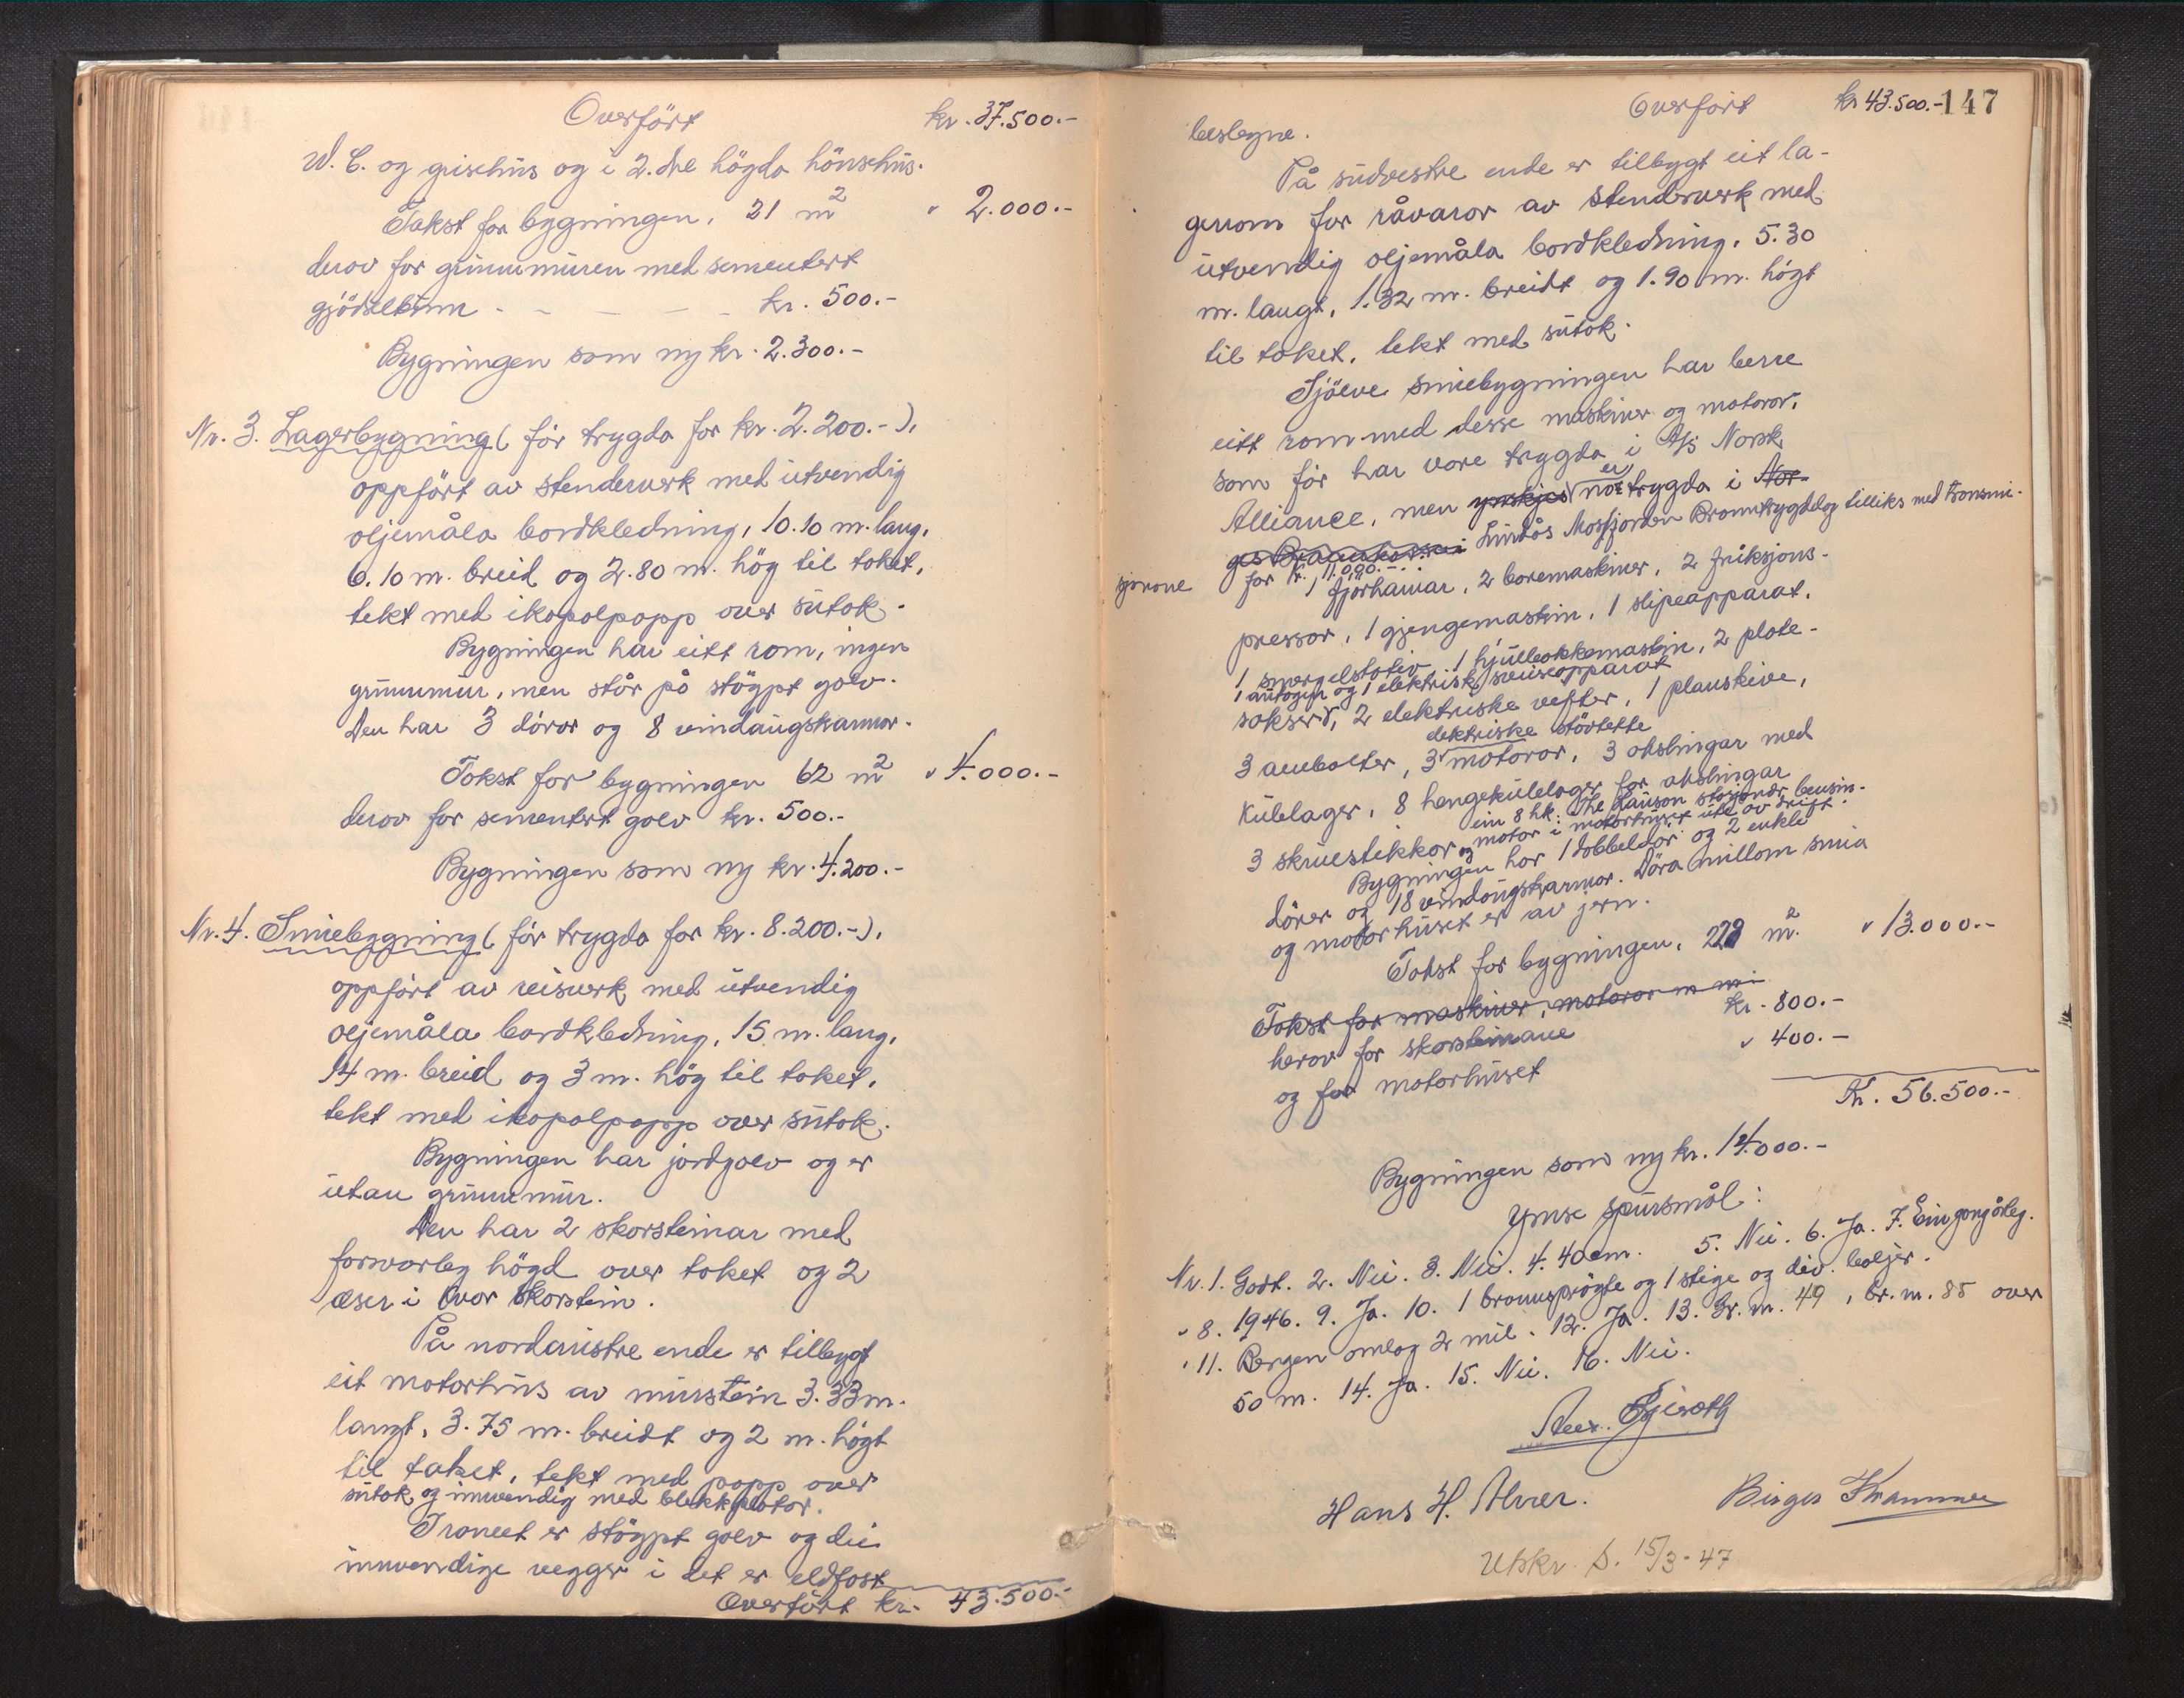 Overført kr. 37.500.-
W. C. og grisehus og i 2. dre högda hönsehus.
Takst for bygningen, 21 m2 " 2.000.-
derav for grunnmuren med sementert
gjödselbinn - - - - - kr. 500.-
Bygningen som ny kr. 2.300.-
Nr. 3. Lagerbygning (för trygda for kr. 2.200.-),
oppfört av stenderverk med utvendig
oljemåla bordkledning, 10.10 m. lang,
6.10 m. breid og 2.80 m. hög til taket,
tekt med ikopalpapp over sutak.
Bygningen har eitt rom, ingen
grunnmur, men står på stöypt golv.
Den har 3 dörar og 8 vindaugskarmar.
Takst for bygningen 62 m2 " 4.000.-
derav for sementert golv kr. 500.-
Bygningen som ny kr. 4.200.-
Nr. 4. Smiebygning (för trygda for kr. 8.200.-),
oppfört av reisverk med utvendig
oljemåla bordkledning, 15 m. lang,
14 m. breid og 3 m. hög til taket,
tekt med ikopalpapp over sutak.
Bygningen har jordgolv og er
utan grunnmur.
Den har 2 skorsteinar med
forsvarleg högd over taket og 2
æser i kvar skorstein.
På nordaustre ende er tilbygt
eit motorhus av murstein 3.33 m.
langt, 3.75 m. breidt og 2 m. högt
til taket, tekt med papp over
sutak og innvendig med blekkplator.
I romet er stöypt golv og dei
innvendige vegger i det er eldfast
Overfört kr. 43.500.-
Overfört kr 43.500.- 147
beslegne.
På sudvestre ende er tilbygt eit la-
gerrom for råvaror av stenderverk med
utvendig oljemåla bordkledning, 5.30
m. langt, 1.32 m. breidt og 1.90 m. högt
til taket, tekt med sutak.
Sjölve smiebygningen har berre
eitt rom med desse maskiner og motorar,
som för har vore trygda i A/S Norsk
Alliance, men ynskjes er no trygda i Nor-
ges Brannkasse i Lindås Mosfjorden Branntrygdelag tilliks med transmi-
sjonane for kr. 11.000.-:
1 fjörhamar, 2 boremaskiner, 2 friksjons-
pressor, 1 gjengemaskin, 1 slipeapparat,
1 smergelstativ, 1 hjullokkemaskin, 2 plate-
1 autogen og 1 elektrisk sveiseapparat
sakser, 2 elektriske vifter, 1 planskive,
elektriske stövtette
3 ambolter, 3 motorar, 3 akslingar med
kulelager, 8 hengekulelager for akslingar
ein 8 hk. The Lauson stasjonær bensin-
3 skruestikkor og motor i motorhuset ute av drift.
Bygningen har 1 dobbeldör og 2 enkle
dörer og 18 vindaugskarmar. Döra millom smia
og motorhuset er av jern.
Takst for bygningen, 228 m2. " 13.000.-
Takst for maskiner, motorar m m.
herav for skorsteinane kr. 800.-
og for motorhuset " 400.-
Kr. 56.500.-
Bygningen som ny kr. 14.000.-
Ymse spursmål:
Nr. 1. Godt. 2. Nei. 3. Nei. 4. 40 cm. 5. Nei. 6. Ja. 7. Ein gong årleg.
" 8. 1946. 9. Ja. 10. 1 brannspröyte og 1 stige og div. baljer.
" 11. Bergen omlag 2 mil. 12. Ja. 13. Gr. m. 49, br. m. 85 over
50 m. 14. Ja. 15. Nei. 16. Nei.
Hans H. Alver. Birger
Utskr. D. 15/3-47